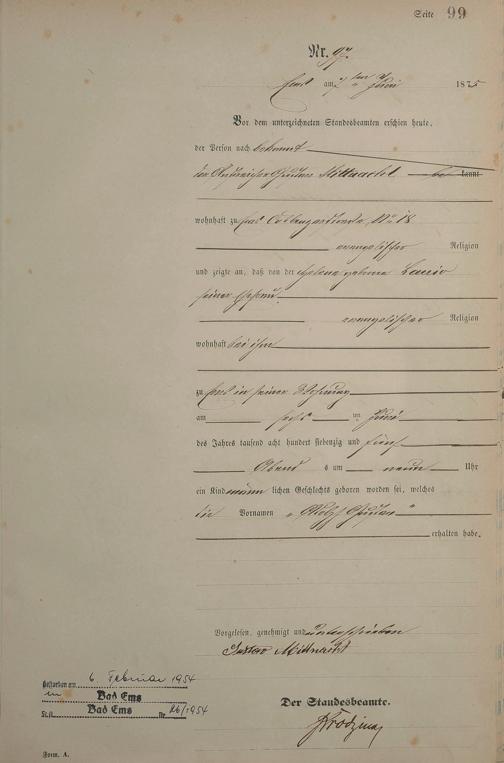 Seite 99
Nr. 97.
Ems am 7ten Juni 1875
Vor dem unterzeichneten Standesbeamten erschien heute,
der Person nach bekannt
der Gustav Mittnacht kannt
wohnhaft zu Ems Coblenzerstraße, No 18
evangelischer Religion
und zeigte an, daß von der Helena geborne
seiner Ehefrau
evangelischer Religion
wohnhaft bei ihm
zu Ems in seiner Wohnung
am sechs ten Juni
des Jahres tausend acht hundert siebenzig und fünf
Abend s um neun Uhr
ein Kind männ lichen Geschlechts geboren worden sei, welches
die Vornamen „Adolf Gustav“
erhalten habe.
Vorgelesen, genehmigt und unterschrieben
Gustav Mittnacht
Gestorben am 6. Februar 1954
in Bad Ems
St.A. Bad Ems Nr 26/1954
Der Standesbeamte.
Form. A.